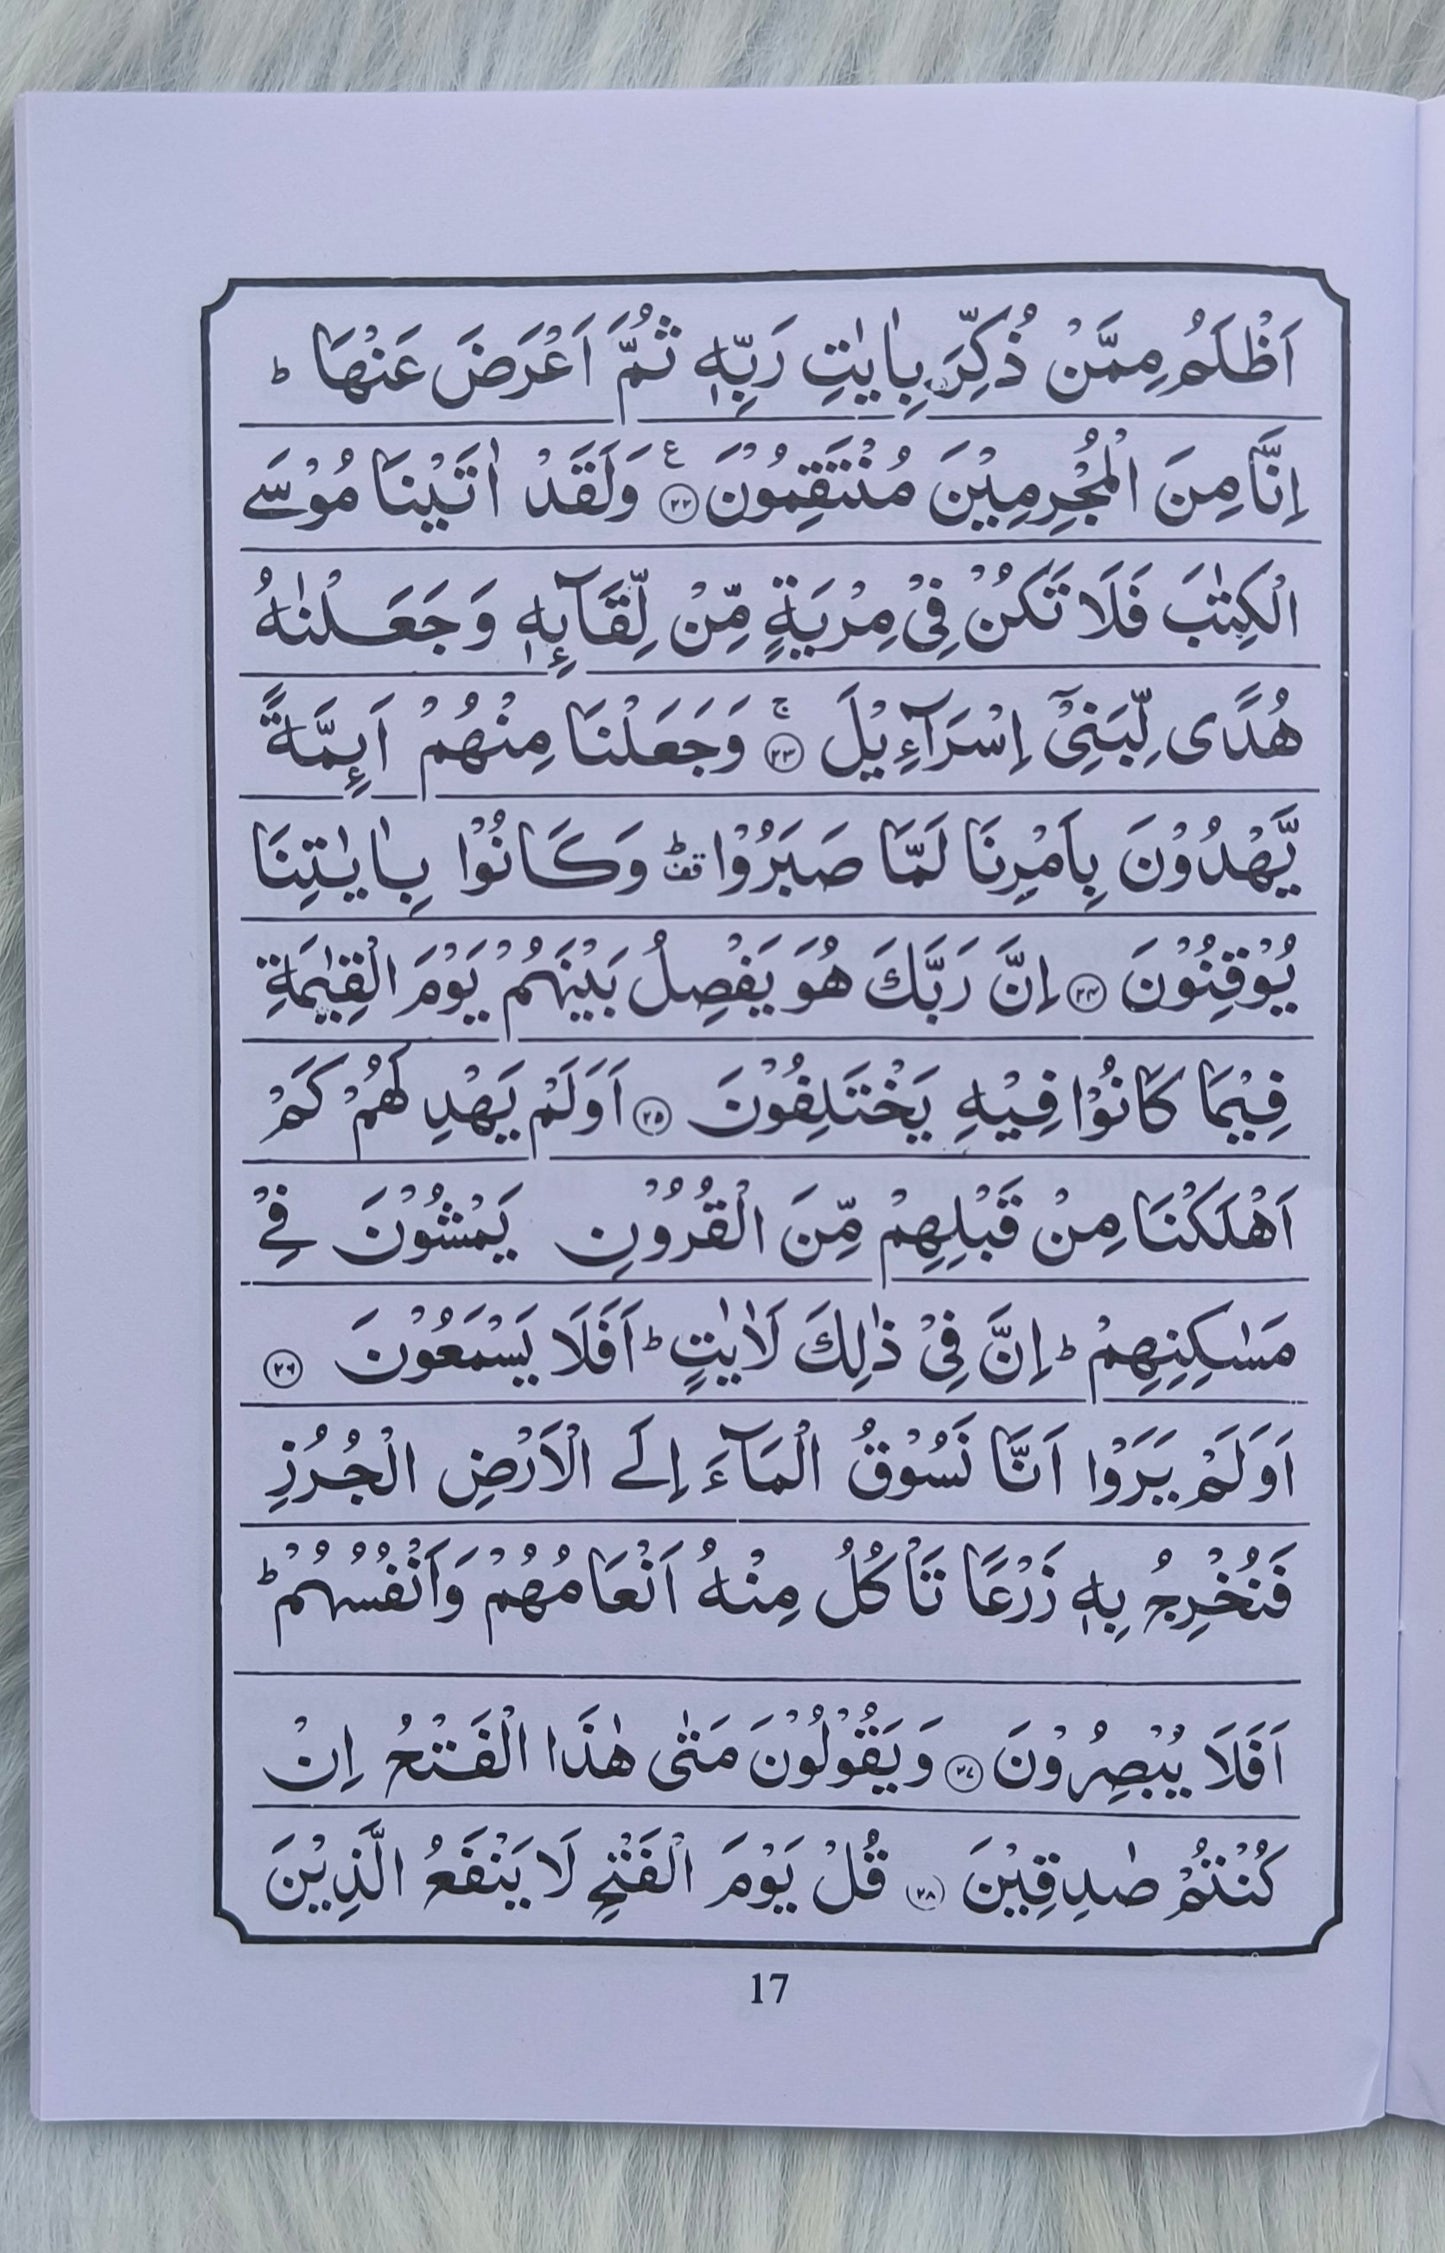 اَظْلَمُ مِمَّنْ ذُكِّرَ بِاٰيٰتِ رَبِّهٖ ثُمَّ اَعْرَضَ عَنْهَا ؕ
اِنَّا مِنَ الْمُجْرِمِيْنَ مُنْتَقِمُوْنَ ﴿۲۲﴾ ع وَلَقَدْ اٰتَيْنَا مُوْسَے
الْكِتٰبَ فَلَا تَكُنْ فِیْ مِرْيَةٍ مِّنْ لِّقَآئِهٖ وَجَعَلْنٰهُ
هُدًی لِّبَنِیْۤ اِسْرَآءِيْلَ ﴿۲۳﴾ ۚ وَجَعَلْنَا مِنْهُمْ اَئِمَّةً
يَّهْدُوْنَ بِاَمْرِنَا لَمَّا صَبَرُوْا ؕ قف وَكَانُوْا بِاٰيٰتِنَا
يُوْقِنُوْنَ ﴿۲۴﴾ اِنَّ رَبَّكَ هُوَ يَفْصِلُ بَيْنَهُمْ يَوْمَ الْقِيٰمَةِ
فِيْمَا كَانُوْا فِيْهِ يَخْتَلِفُوْنَ ﴿۲۵﴾ اَوَلَمْ يَهْدِ لَهُمْ كَمْ
اَهْلَكْنَا مِنْ قَبْلِهِمْ مِّنَ الْقُرُوْنِ يَمْشُوْنَ فِیْ
مَسٰكِنِهِمْ ؕ اِنَّ فِیْ ذٰلِكَ لَاٰيٰتٍ ؕ اَفَلَا يَسْمَعُوْنَ ﴿۲۶﴾
اَوَلَمْ يَرَوْا اَنَّا نَسُوْقُ الْمَآءَ اِلَے الْاَرْضِ الْجُرُزِ
فَنُخْرِجُ بِهٖ زَرْعًا تَاْكُلُ مِنْهُ اَنْعَامُهُمْ وَاَنْفُسُهُمْ ؕ
اَفَلَا يُبْصِرُوْنَ ﴿۲۷﴾ وَيَقُوْلُوْنَ مَتٰی هٰذَا الْفَتْحُ اِنْ
كُنْتُمْ صٰدِقِيْنَ ﴿۲۸﴾ قُلْ يَوْمَ الْفَتْحِ لَا يَنْفَعُ الَّذِيْنَ
17